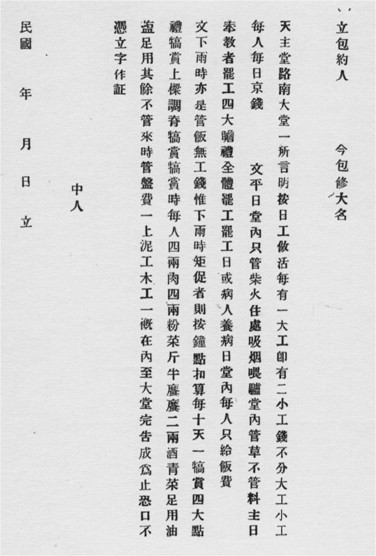 立包約人　今包修大名
天主堂路南大堂一所言明按日工做活每有一大工卽有二小工錢不分大工小工
每人每日京錢　文平日堂內只管柴火住處吸烟喂驢堂內管草不管料主日
奉教者罷工四大瞻禮全體罷工罷工日或病人養病日堂內每人只給飯費
文下雨時亦是管飯無工錢惟下雨時矩促者則按鐘點扣算每十天一犒賞四大點
禮犒賞上樑調脊犒賞犒賞時每人四兩肉四兩粉菜斤半蔴蔴二兩酒青菜足用油
盐足用其餘不管來時管盤費一上泥工木工一概在內至大堂完告成爲止恐口不
憑立字作証
中人
民國　年　月　日　立